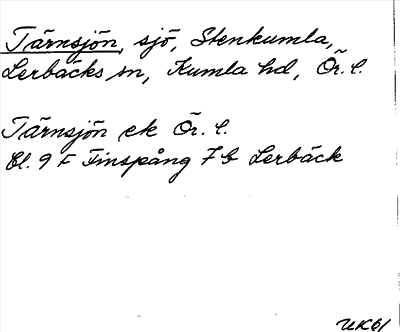 Tärnsjön, sjö, Stenkumla,
Lerbäcks sn, Kumla hd, Ör. l.
Tärnsjön ek Ör. l.
Bl. 9 F Finspång 7 b Lerbäck
UK61